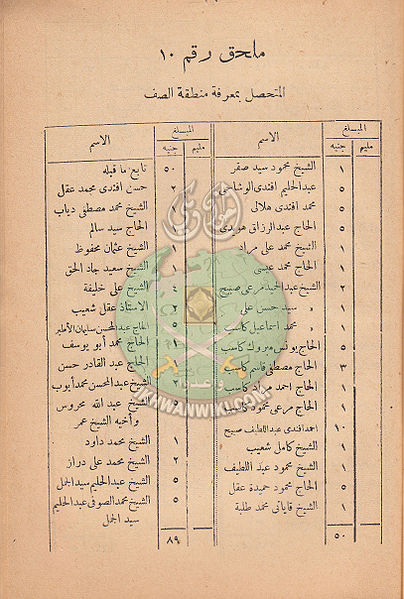 ملحق رقم ١٠
المتحصل بمعرفة منطقة الصف
المبلغ
الاسم
مليم
جنيه
١ الشيخ محمود سيد صقر
٥ عبدالحليم افندى الوشاحى
٥ محمد افندى هلالى
٥ الحاج عبدالرازق هويدى
١ الشيخ محمد على مراد
١ الحاج محمد عيسى
٢ الشيخ عبدالحميد مرعى صبيح
١ » سيد حسن على
١ » محمد اسماعيل كاسب
٥ الحاج يونس مبروك كاسب
٣ الحاج مصطفى قاسم كاسب
١ الحاج احمد مراد كاسب
١ الحاج مرعى محمود كاسب
١٠ احمد افندى عبداللطيف صبيح
١ الشيخ كامل شعيب
١ الشيخ محمود عبد اللطيف
٥ الحاج محمود حميدة عقل
١ الشيخ قايانى محمد طلبة
٥٠
المبلغ
الاسم
مليم
جنيه
٥٠ تابع ما قبله
٢ حسن افندى محمد عقل
الشيخ محمد مصطفى دياب
١ الحاج سيد سالم
١ الشيخ عثمان محفوظ
١ الشيخ سعيد جاد الحق
٤ الشيخ على خليفة
٢ الاستاذ عقل شعيب
٥ الحاج عبد المحسن سليمان
١ الحاج محمد أبو يوسف
الحاج عبد القادر حسن
٢ الشيخ عبدالمحسن محمد أيوب
٥ الشيخ عبد الله محروس
وأخيه الشيخ عمر
١ الشيخ محمد داود
٢ الشيخ محمد على دراز
٥ الشيخ عبدالحليم سيد الجمل
٥ الشيخ محمد الصوفى عبدالحليم
سيد الجمل
٨٩
إخوان ويكى
وأعدوا
IKHWANWIKI.COM